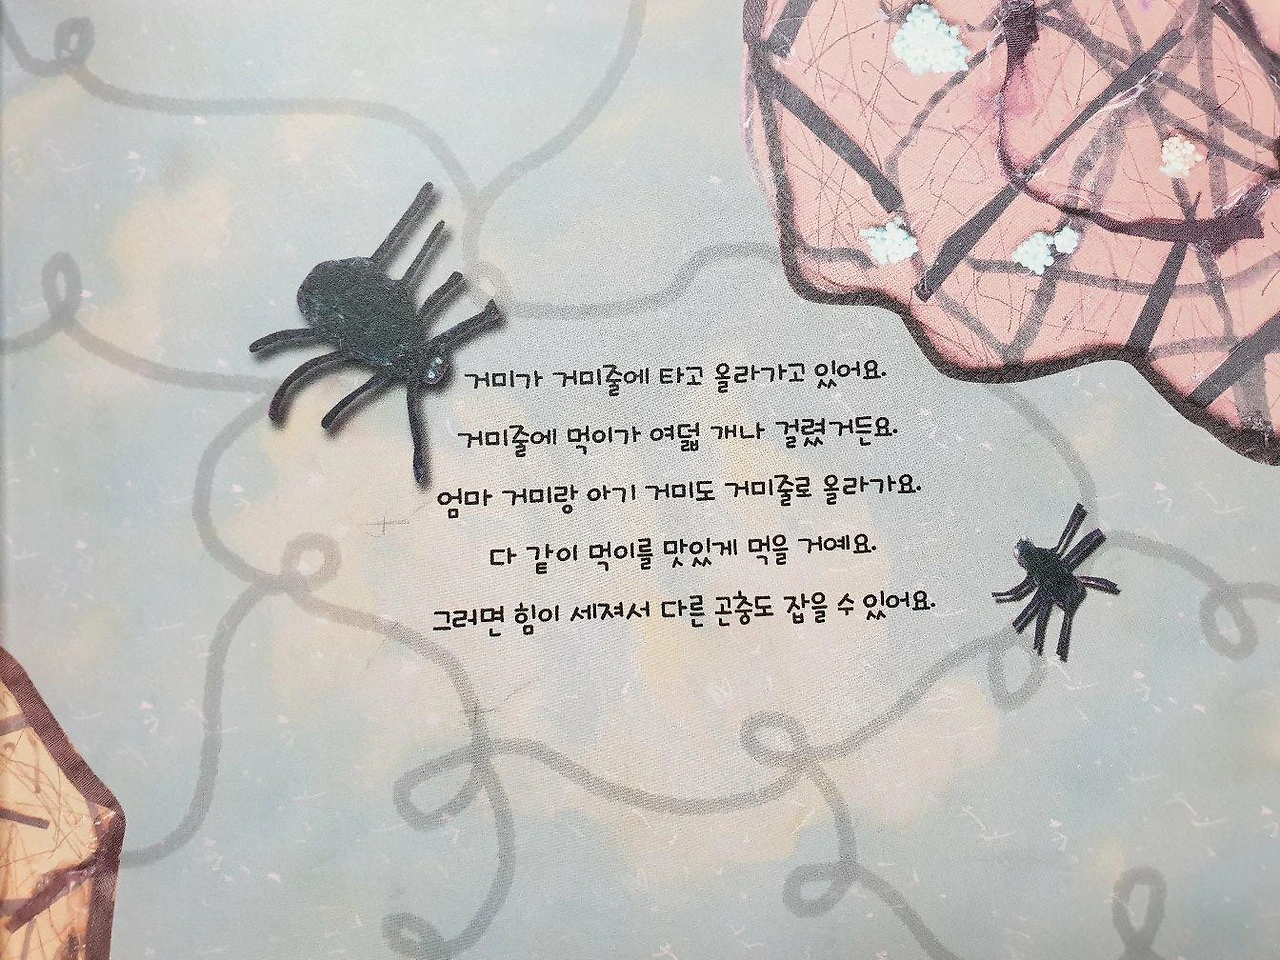 거미가 거미줄에 타고 올라가고 있어요.
거미줄에 먹이가 여덟 개나 걸렸거든요.
엄마 거미랑 아기 거미도 거미줄로 올라가요.
다 같이 먹이를 맛있게 먹을 거예요.
그러면 힘이 세져서 다른 곤충도 잡을 수 있어요.